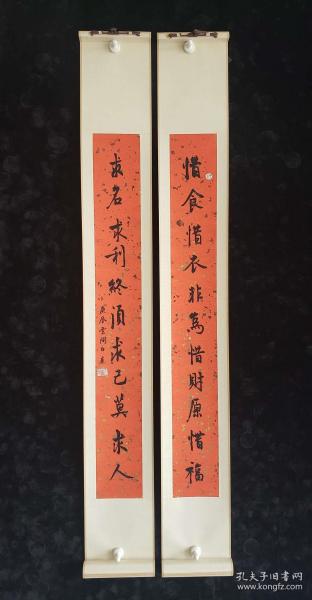 惜食惜衣非為惜財原惜福
求名求利終須求己莫求人
孔夫子旧书网